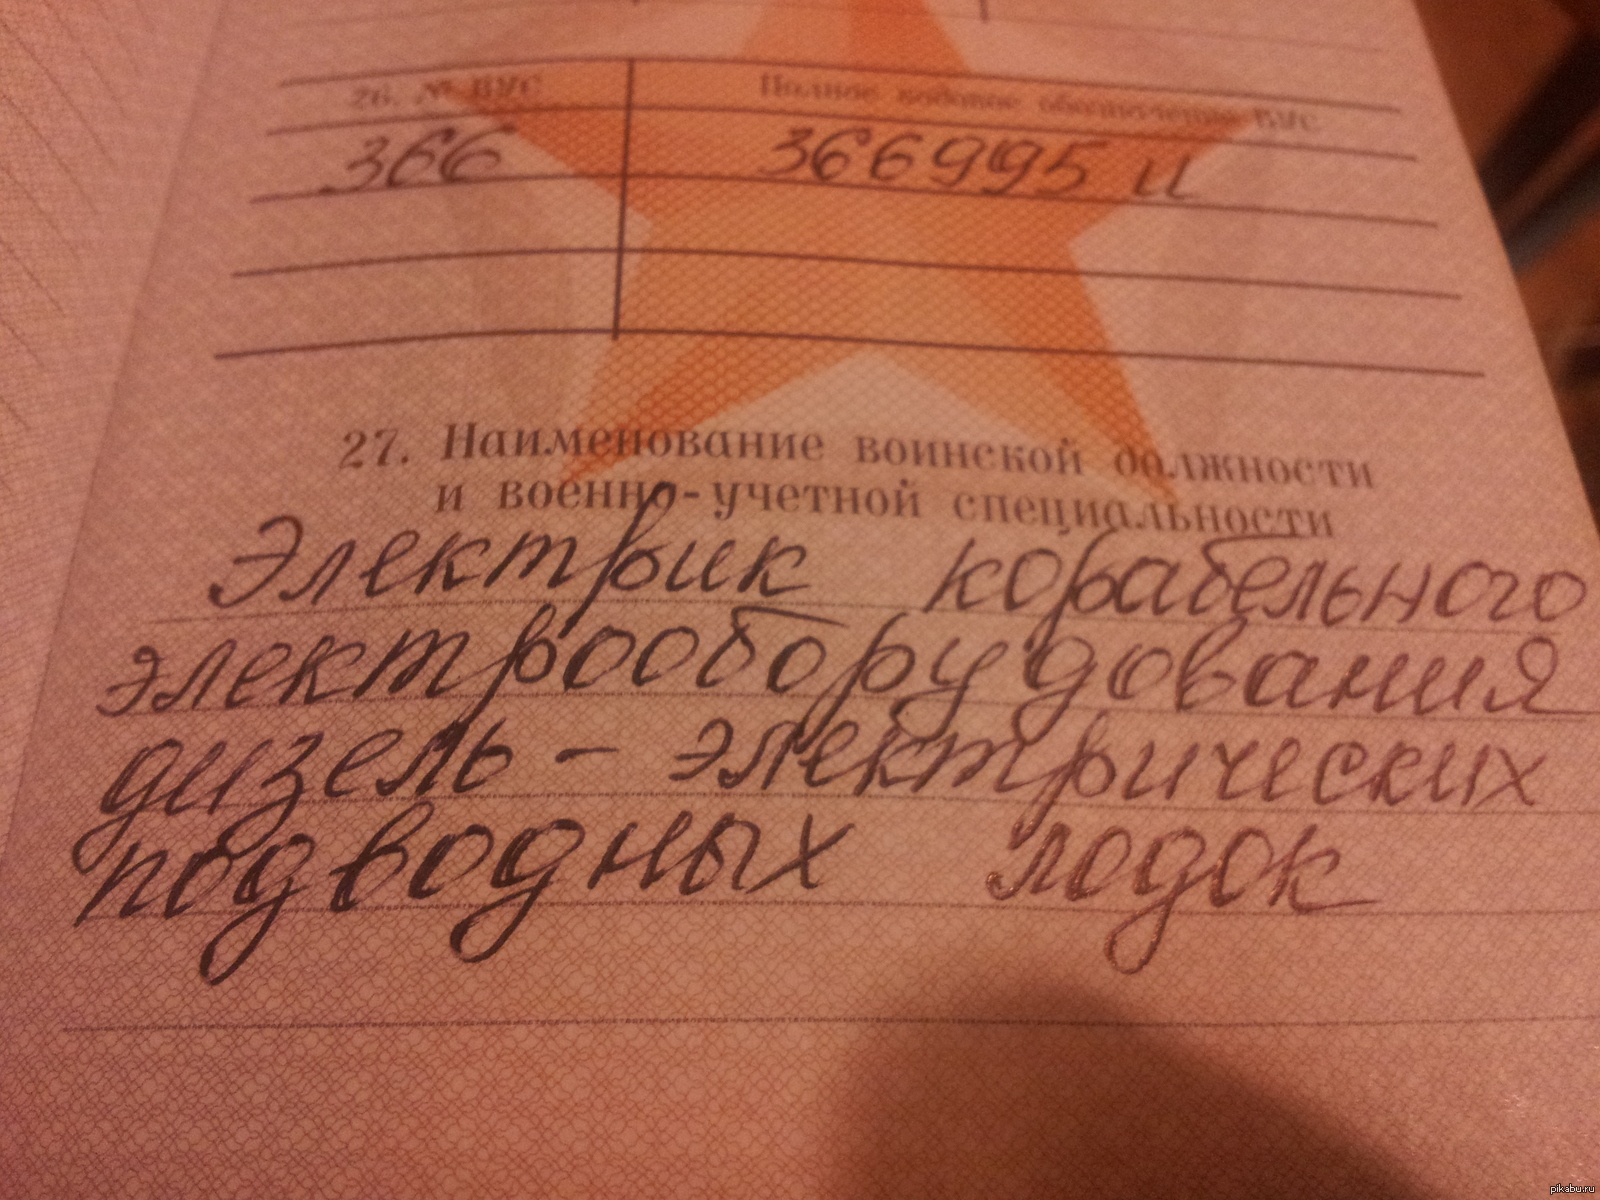 26. № ВУС Полное кодовое обозначение ВУС
366 366995 И
27. Наименование воинской должности
и военно-учетной специальности
Электрик корабельного
электрооборудования
дизель-электрических
подводных лодок
pikabu.ru